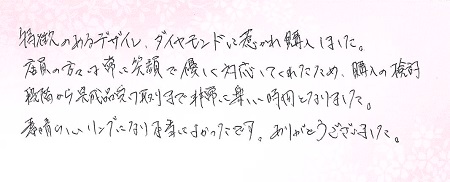 特徴のあるデザイン、ダイヤモンドに惹かれ購入しました。
店員の方々は常に笑顔で優しく対応してくれたため、購入の検討
段階から完成品受け取りまで非常に楽しい時間となりました。
素晴らしいリングになり本当によかったです。ありがとうございました。